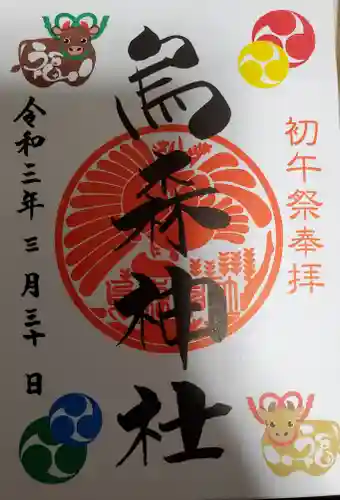 初午祭奉拝
烏森神社
令和三年三月三十日
福
福